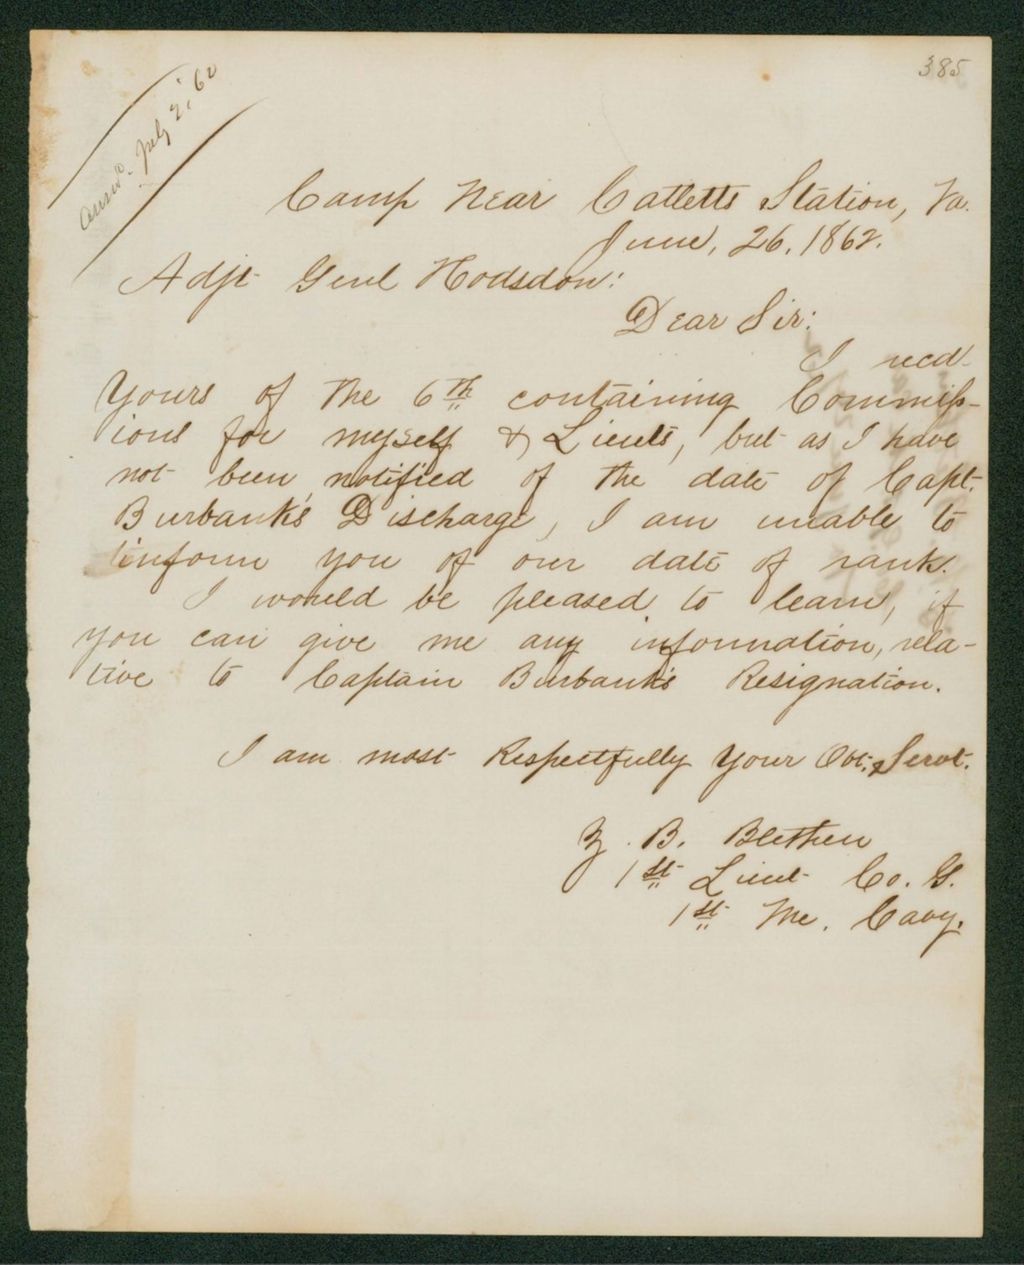 385
answd. July 2, '62
Camp Near Catletts Station, Va.
June, 26, 1862.
Adjt Genl Hodsdon:
Dear Sir:
I recd
Yours of the 6th containing Commiss-
ions for myself & Lieuts, but as I have
not been notified of the date of Capt.
Burbank's Discharge, I am unable to
inform you of our date of rank.
I would be pleased to learn, if
you can give me any information, rela-
tive to Captain Burbank's Resignation.
I am most Respectfully Your Obt. Servt.
Z. B. Blethen
1st Lieut Co. G.
1st Me. Cavy.